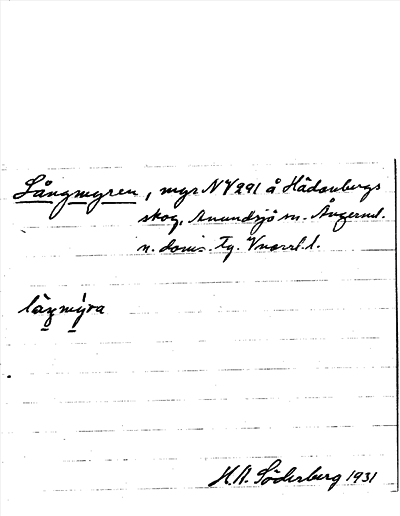 Långmyren, myr NV 291 å Hädanbergs
skog, Anundsjö sn. Ångerml.
n. doms. Tg. Vnorrl. l.
H.A. Söderberg 1931